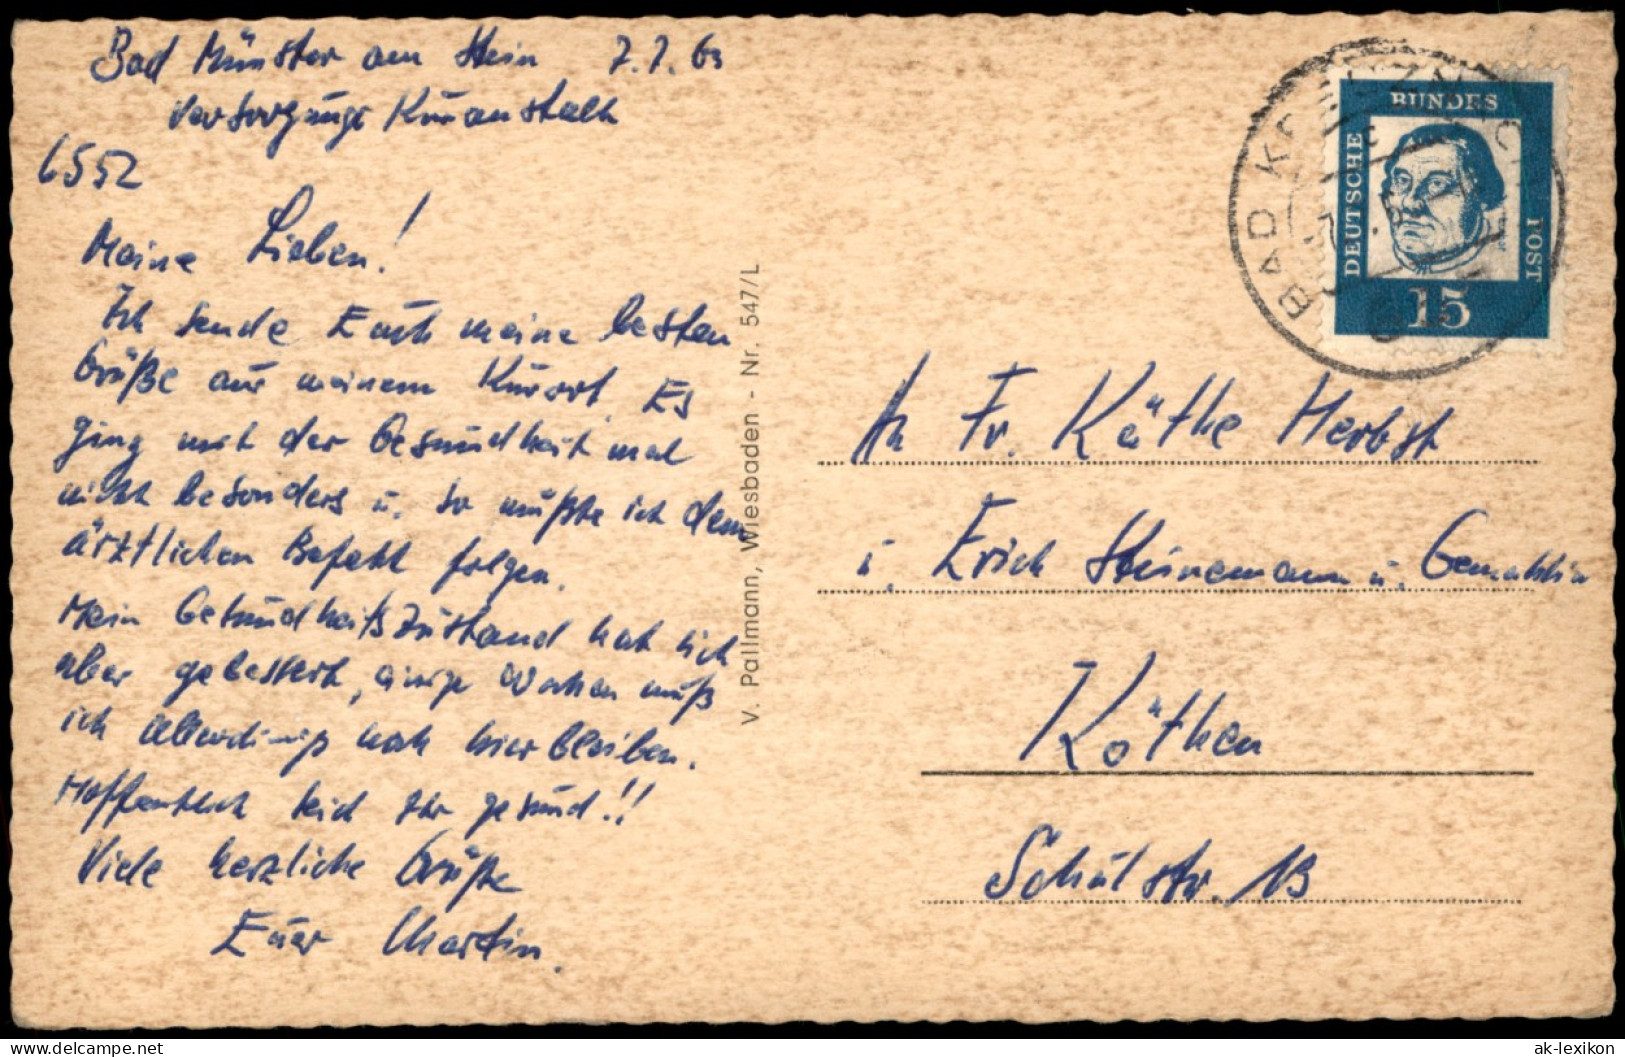 Bad Münster am Stein 7.7.63
Versorgungs Kuranstalt
6552
Meine Lieben!
Ich sende Euch meine besten
Grüße aus meinem Kurort. Es
ging mit der Gesundheit mal
nicht besonders u. so mußte ich dem
ärztlichen Befehl folgen.
Mein Gesundheitszustand hat sich
aber gebessert, einige Wochen muß
ich allerdings noch hier bleiben.
Hoffentlich seid Ihr gesund!!
Viele herzliche Grüße
Euer Martin.
V. Pallmann, Wiesbaden - Nr. 547/L
BAD
DEUTSCHE
BUNDES
POST
15
An Fr. Käthe Herbst
u. Erich Steinemann u. Gemahlin
Köthen
Schulstr. 13
www.delcampe.net
ak-lexikon